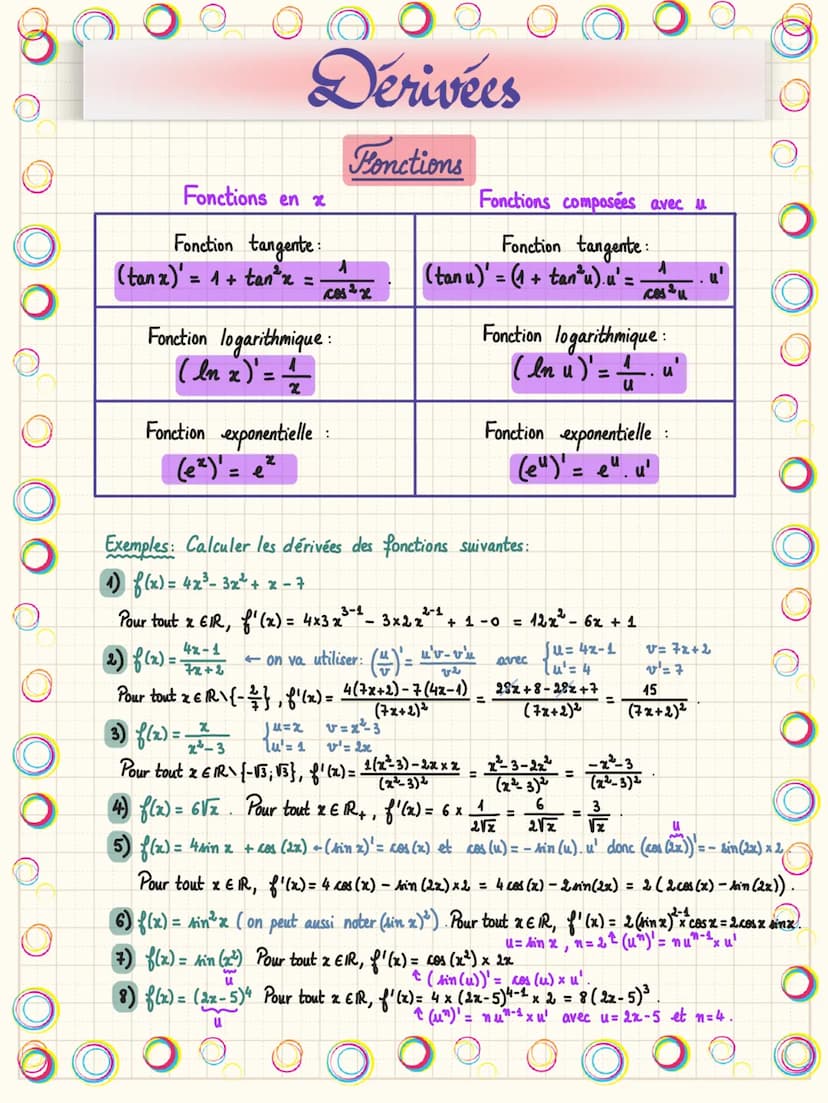 Dérivées
Fonctions
Fonctions en x
Fonctions composées avec u
Fonction tangente :
(tan x)' = 1 + tan²x = 1/cos²x
Fonction tangente :
(tan u)' = (1 + tan²u).u' = 1/cos²u . u'
Fonction logarithmique :
(ln x)' = 1/x
Fonction logarithmique :
(ln u)' = 1/u . u'
Fonction exponentielle :
(eˣ)' = eˣ
Fonction exponentielle :
(eᵘ)' = eᵘ . u'
Exemples : Calculer les dérivées des fonctions suivantes :
1) f(x) = 4x³ - 3x² + x - 7
Pour tout x ∈ IR, f'(x) = 4×3x³⁻¹ - 3×2x²⁻¹ + 1 - 0 = 12x² - 6x + 1
2) f(x) = (4x-1)/(7x+2) ← on va utiliser : (u/v)' = (u'v-v'u)/v² avec {u = 4x-1 v = 7x+2
u' = 4 v' = 7
Pour tout x ∈ IR\{-2/7}, f'(x) = (4(7x+2)-7(4x-1))/(7x+2)² = (28x+8-28x+7)/(7x+2)² = 15/(7x+2)² .
3) f(x) = x/(x²-3) {u = x v = x²-3
u' = 1 v' = 2x
Pour tout x ∈ IR\{-√3 ; √3}, f'(x) = (1(x²-3)-2x×x)/(x²-3)² = (x²-3-2x²)/(x²-3)² = (-x²-3)/(x²-3)² .
4) f(x) = 6√x . Pour tout x ∈ IR₊, f'(x) = 6 × 1/(2√x) = 6/(2√x) = 3/√x .
u
5) f(x) = 4sin x + cos (2x) ← (sin x)' = cos(x) et cos(u) = - sin(u).u' donc (cos (2x))' = - sin(2x) × 2 .
Pour tout x ∈ IR, f'(x) = 4 cos(x) - sin (2x) × 2 = 4 cos(x) - 2 sin(2x) = 2 (2cos(x) - sin(2x)) .
6) f(x) = sin²x (on peut aussi noter (sin x)²) . Pour tout x ∈ IR, f'(x) = 2(sin x)²⁻¹ × cos x = 2cos x sin x .
u = sin x , n = 2 ↑ (uⁿ)' = nuⁿ⁻¹ × u'
7) f(x) = sin (x²) Pour tout x ∈ IR, f'(x) = cos (x²) × 2x
u ↑ (sin(u))' = cos (u) × u' .
8) f(x) = (2x-5)⁴ Pour tout x ∈ IR, f'(x) = 4 × (2x-5)⁴⁻¹ × 2 = 8(2x-5)³ .
u ↑ (uⁿ)' = nuⁿ⁻¹ × u' avec u = 2x-5 et n = 4 .